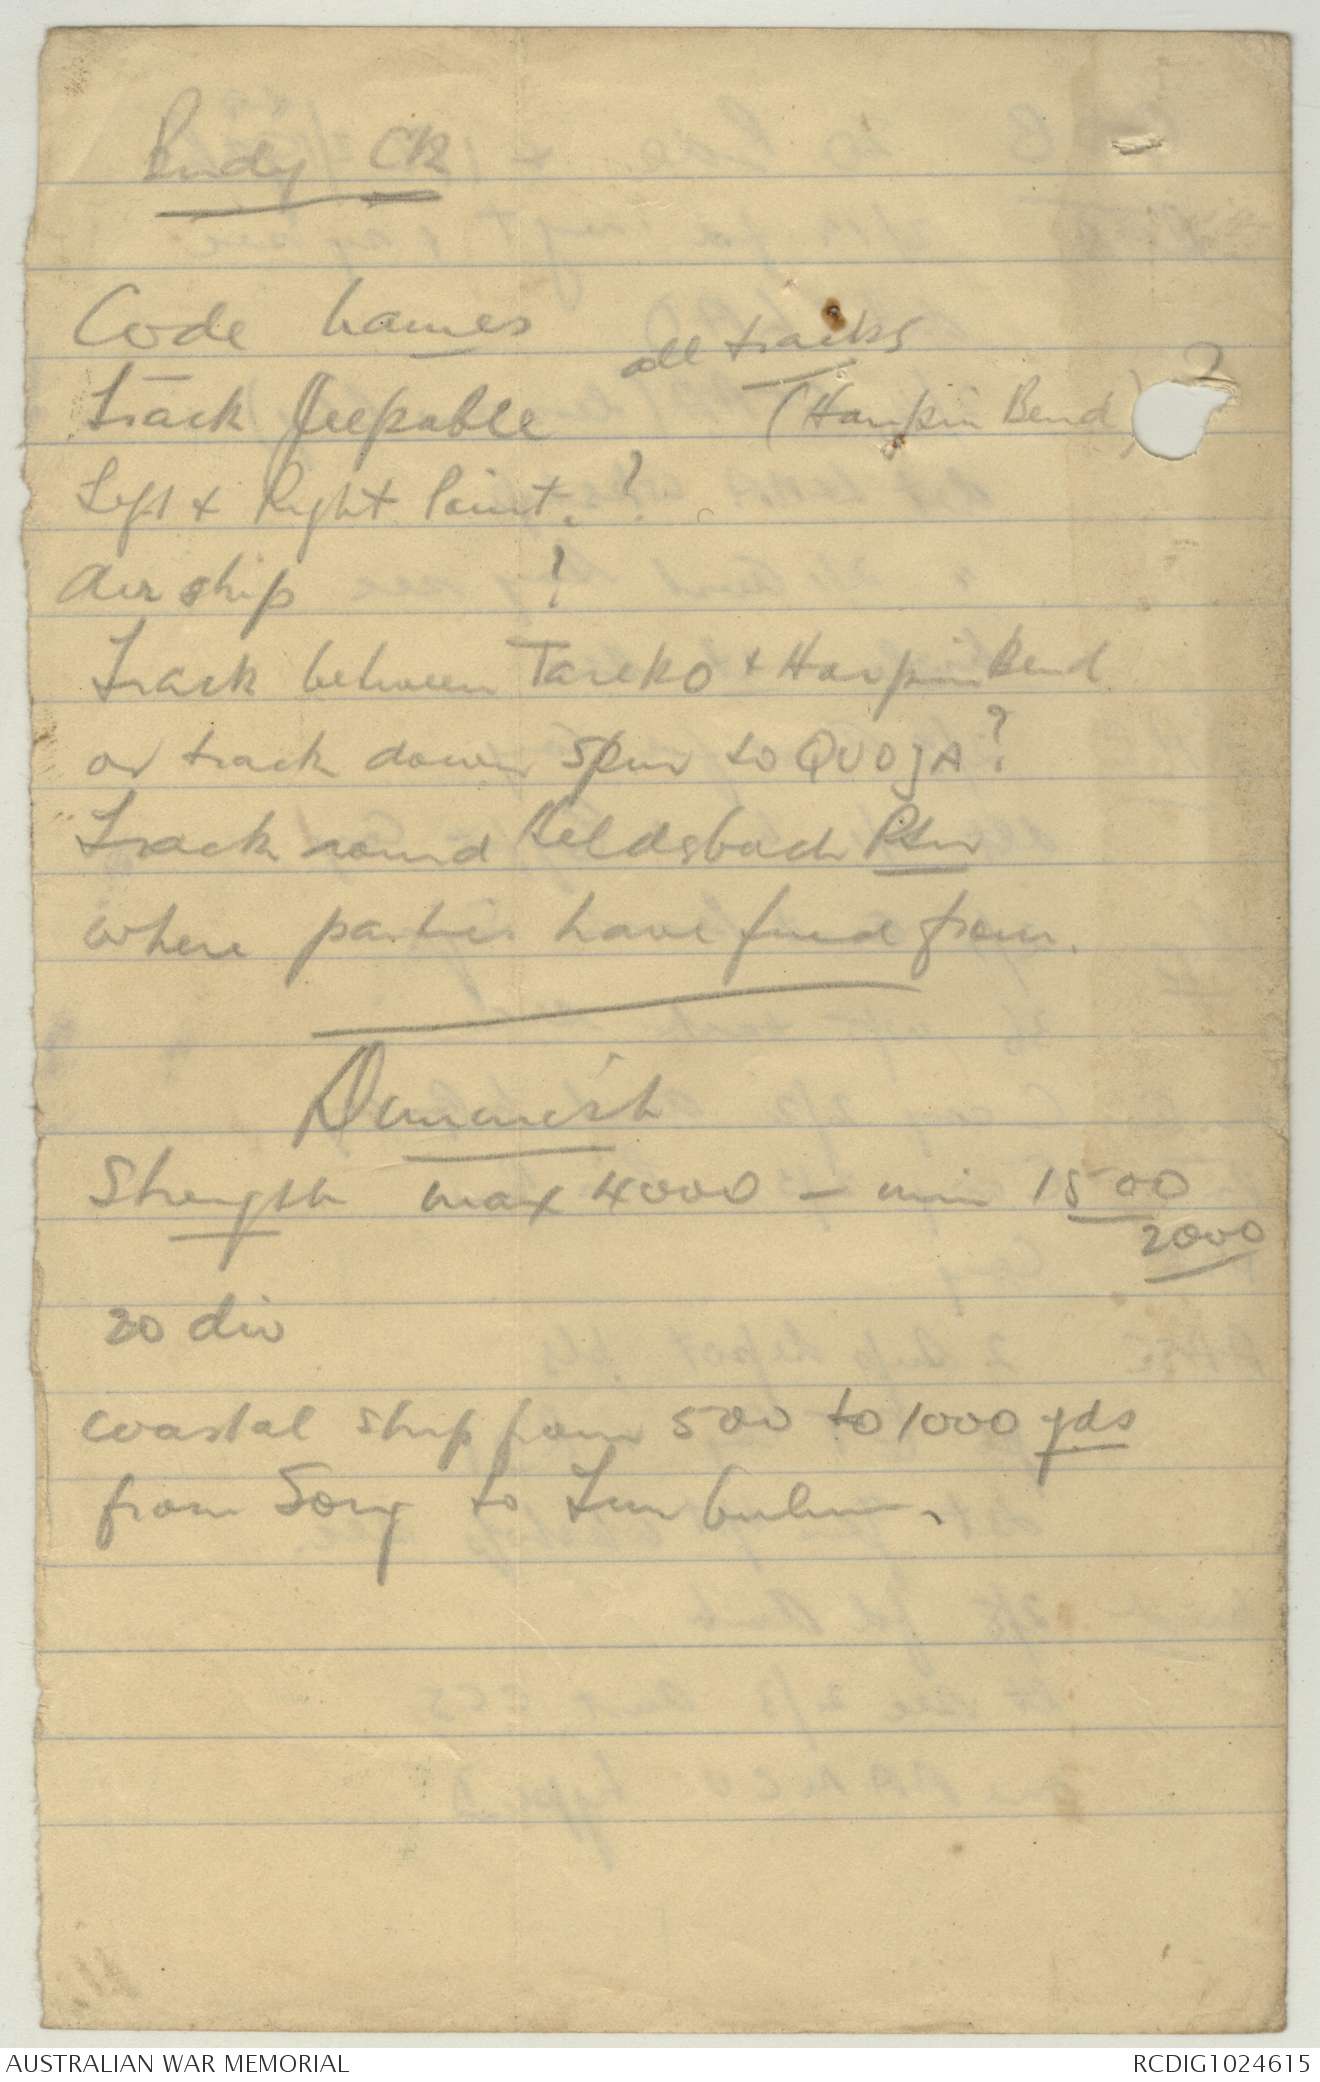 Code names
all tracks
Track Jeepable (Hairpin Bend) ?
Left + Right Point. ?
Air ship ?
Track between Tareko + Hairpin Bend
or track down spur to QUOJA?
Track round Heldsbach Ptn
where parties have from.
Strength max 4000 – min 1500
2000
20 div
coastal strip from 500 to 1000 yds
from Song to
AUSTRALIAN WAR MEMORIAL
RCDIG1024615